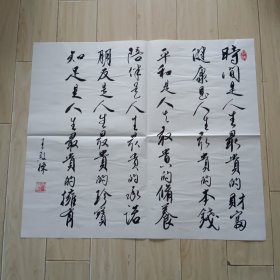 時间是人生最貴的財富
健康是人生最貴的本錢
平和是人生最貴的修養
陪伴是人生最貴的承诺
朋友是人生最貴的珍寶
知足是人生最貴的擁有